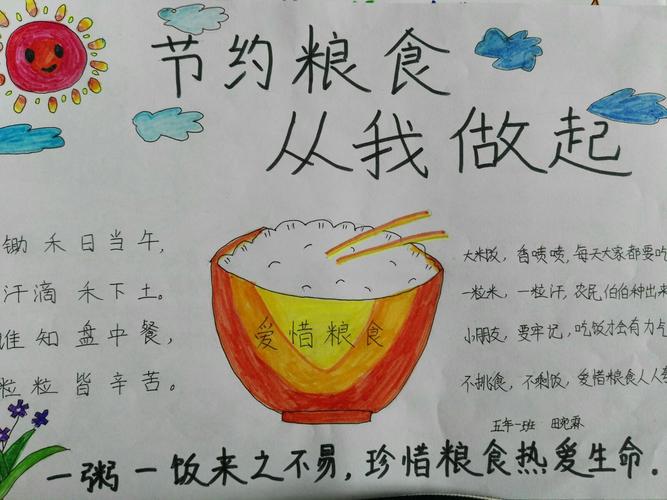 节约粮食
从我做起
锄禾日当午,
汗滴禾下土。
谁知盘中餐,
粒粒皆辛苦。
爱惜粮食
大米饭，香喷喷,每天大家都要吃
一粒米，一粒汗,农民伯伯种出来
小朋友，要牢记,吃饭才会有力气
不挑食，不剩饭，爱惜粮食人人
五年一班 田
一粥一饭来之不易,珍惜粮食热爱生命.